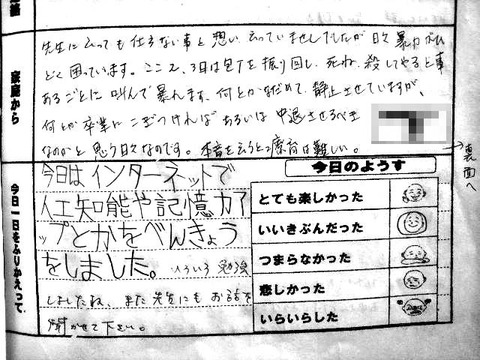 家庭から
先生に云っても仕方ない事と想い云っていませんでしたが日々暴力がひ
どく困っています。ここ2、3日は包丁を振り回し、死ね、殺してやると事
あるごとに叫んで暴れます。何とかなだめて、静止させていますが、
何とか卒業にこぎつければあるいは中退させるべき
なのかと思う日々なのです。本音を云うと療育は難しい。
→裏面へ
今日一日をふりかえって
今日はインターネットで
人工知能や記憶力ア
ップとかをべんきょう
をしました。いろいろ勉強
しましたね、また先生にもお話を
聞かせて下さい。
今日のようす
とても楽しかった
いいきぶんだった
つまらなかった
悲しかった
いらいらした